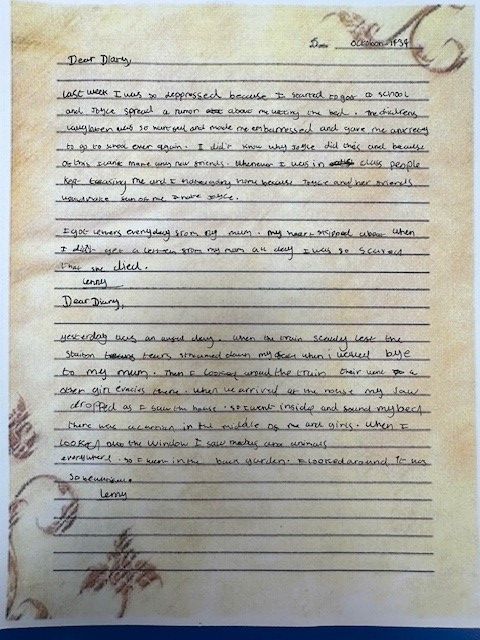 October 1934
Dear Diary,
last week I was so deppressed because I started to goto a school
and Joyce spread a rumor about me wetting the bed. The childrens
was so hurtful and made me embarressed and gave me
to go to school ever again. I didn't know why Joyce did this and because
of this I cant make any new friends. Whenever I was in class people
kept teasing me and I hate going home because Joyce and her friends
make fun of me I hate Joyce.
I got letters everyday from my mum. my heart skipped about when
I didn't get a letter from my mom all day I was so scared
that she died.
Lenny
Dear Diary,
yesterday was an awful day. When the train slowly left the
station tears streamed down my face when i waved bye
to my mum. Then I looked around the train their were
other girl evacies there. When we arrived at the house my Jaw
dropped as I saw the house. so I went inside and found my bed
there was a curtain in the middle of me and girls. When I
looked out the window I saw and animals
everywhere. so I in the back garden. I looked around It was
so beautiful.
Lenny